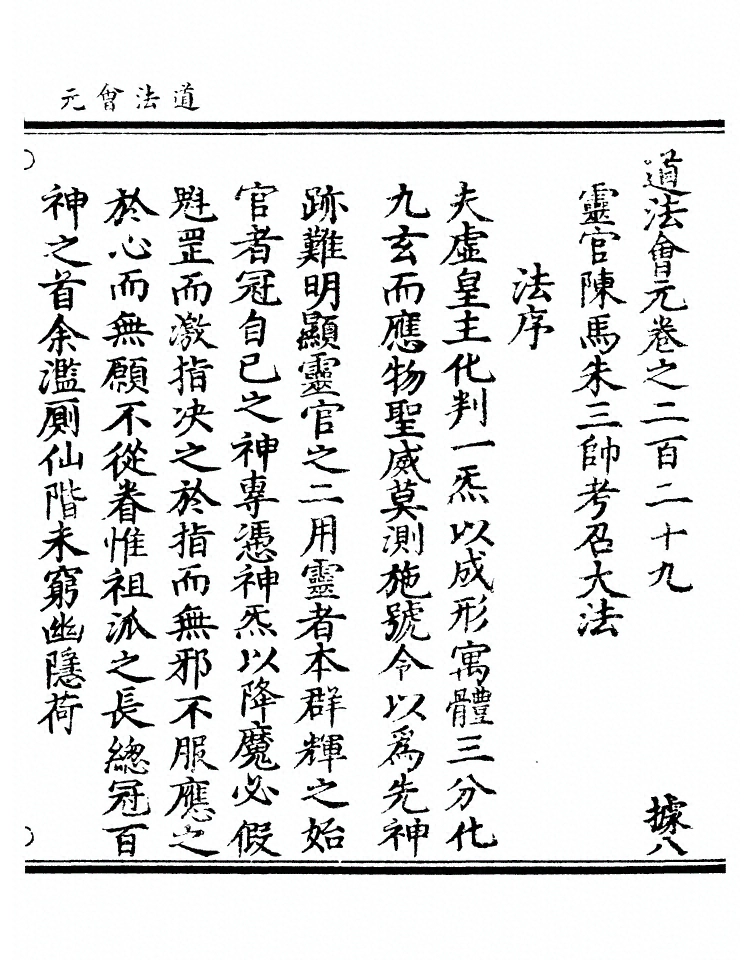 道法會元
道法會元卷之二百二十九 據八
靈官陳馬朱三帥考召大法
法序
夫虛皇主化判一炁以成形寓體三分化
九玄而應物聖威莫測施號令以為先神
跡難明顯靈官之二用靈者本群輝之始
官者冠自己之神專憑神炁以降魔必假
魁罡而激指决之於指而無邪不服應之
於心而無願不從眷惟祖派之長總冠百
神之首余濫厠仙階未窮幽隱荷